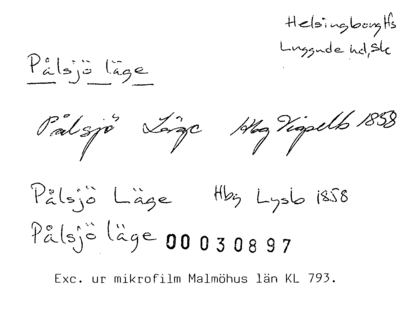 Helsingborg Hfs
Luggude hd, Sk
Pålsjö läge
Pålsjö Läge Hbg Vigselb 1858
Pålsjö Läge Hbg Lysb 1858
Pålsjö läge 00030897
Exc. ur mikrofilm Malmöhus län KL 793.